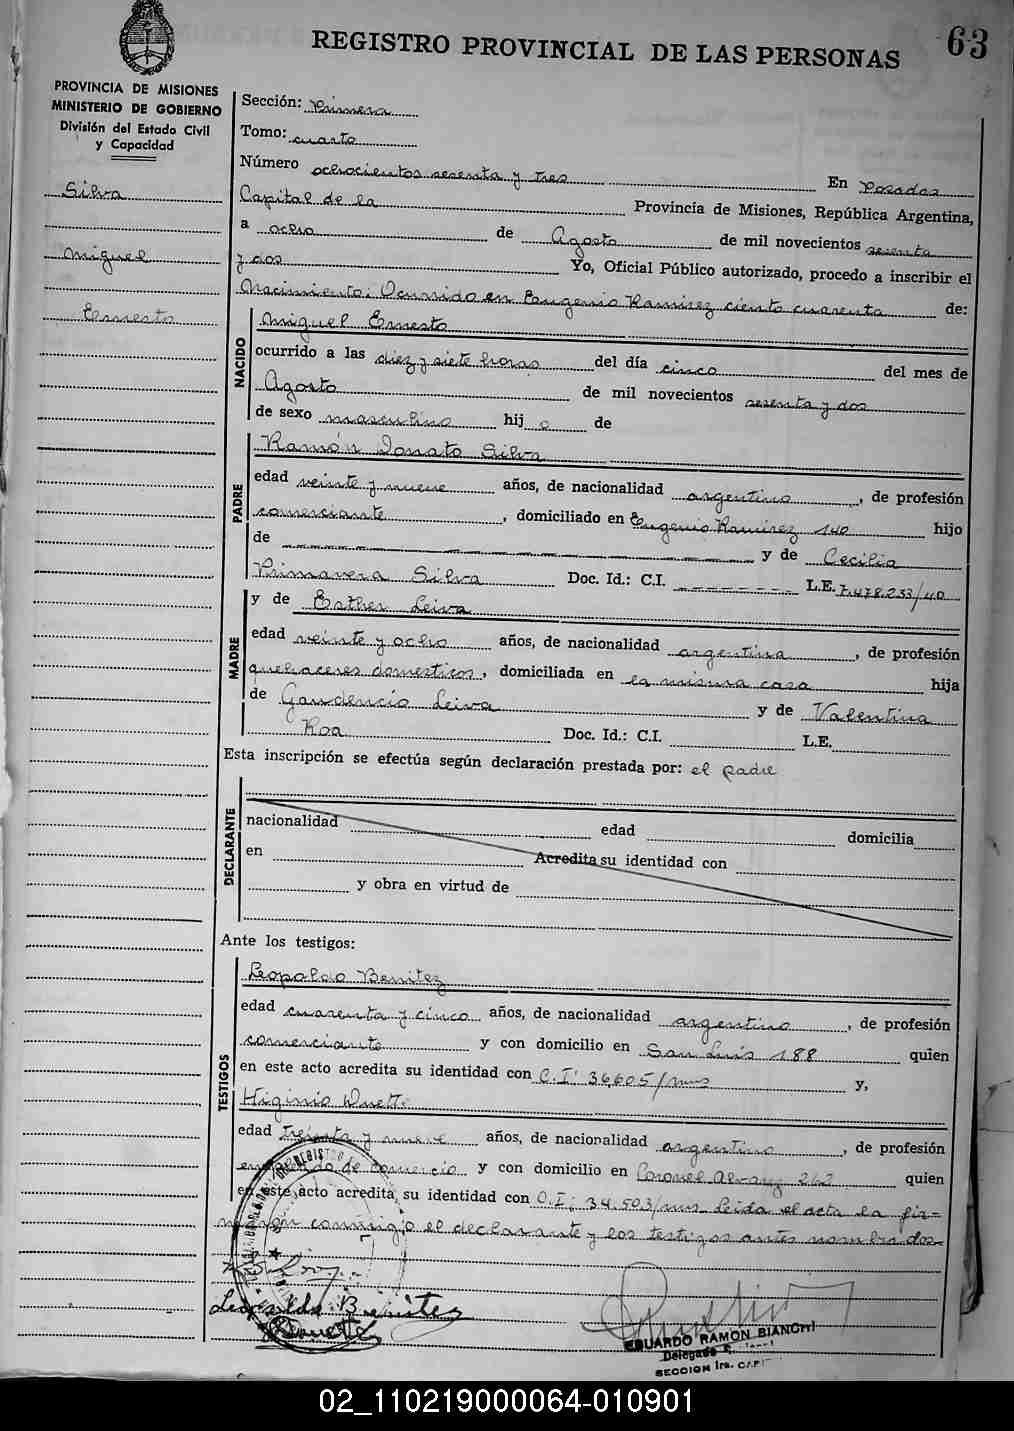 REGISTRO PROVINCIAL DE LAS PERSONAS
63
PROVINCIA DE MISIONES
MINISTERIO DE GOBIERNO
División del Estado Civil
y Capacidad
Silva
Miguel
Ernesto
Sección: Primera
Tomo: cuarto
Número ochocientos sesenta y tres En Posadas
Capital de la Provincia de Misiones, República Argentina,
a ocho de Agosto de mil novecientos sesenta
y dos Yo, Oficial Público autorizado, procedo a inscribir el
Nacimiento: Ocurrido en Eugenio Ramirez ciento cuarenta de:
NACIDO
Miguel Ernesto
ocurrido a las diez y siete horas del día cinco del mes de
Agosto de mil novecientos sesenta y dos
de sexo masculino hijo de
PADRE
Ramón Donato Silva
edad veinte y nueve años, de nacionalidad argentino, de profesión
comerciante, domiciliado en Eugenio Ramirez 140 hijo
de y de Cecilia
Primavera Silva Doc. Id.: C.I. L.E. 7.478.233/40
MADRE
y de Esther Leiva
edad veinte y ocho años, de nacionalidad argentina, de profesión
quehaceres domesticos, domiciliada en la misma casa hija
de Gaudencio Leiva y de Valentina
Roa Doc. Id.: C.I. L.E.
Esta inscripción se efectúa según declaración prestada por: el padre
DECLARANTE
nacionalidad edad domicilia
en Acredita su identidad con
y obra en virtud de
Ante los testigos:
TESTIGOS
Leopoldo Benitez
edad cuarenta y cinco años, de nacionalidad argentino, de profesión
comerciante y con domicilio en San Luis 188 quien
en este acto acredita su identidad con C.I: 36605/mns y,
Higinio Duette
edad treinta y nueve años, de nacionalidad argentino, de profesión
empleado de comercio y con domicilio en Coronel Alvarez 262 quien
en este acto acredita su identidad con C.I: 34.503/mns Leida el acta la fir-
maron conmigo el declarante y los testigos antes nombrados.
Leopoldo Benitez
EDUARDO RAMON BIANCHI
Delegado
SECCION 1ra. CAPI
02_110219000064-010901